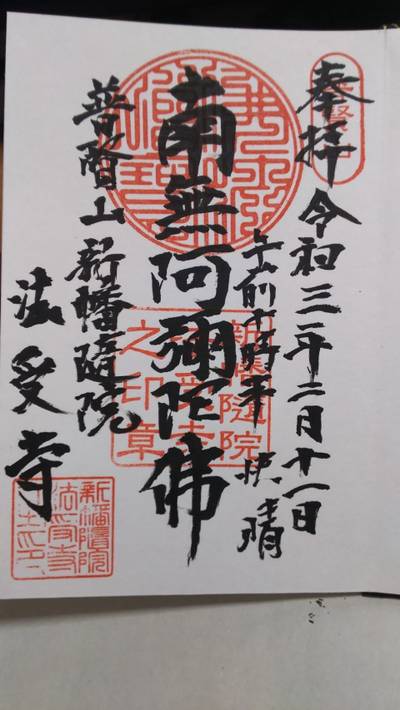 奉拝 令和三年二月十一日
午前七時半 快晴
南無阿彌陀佛
普賢山 新幡隨院
法受寺
新幡隨院
法受寺
之印章
新幡隨院
法受寺